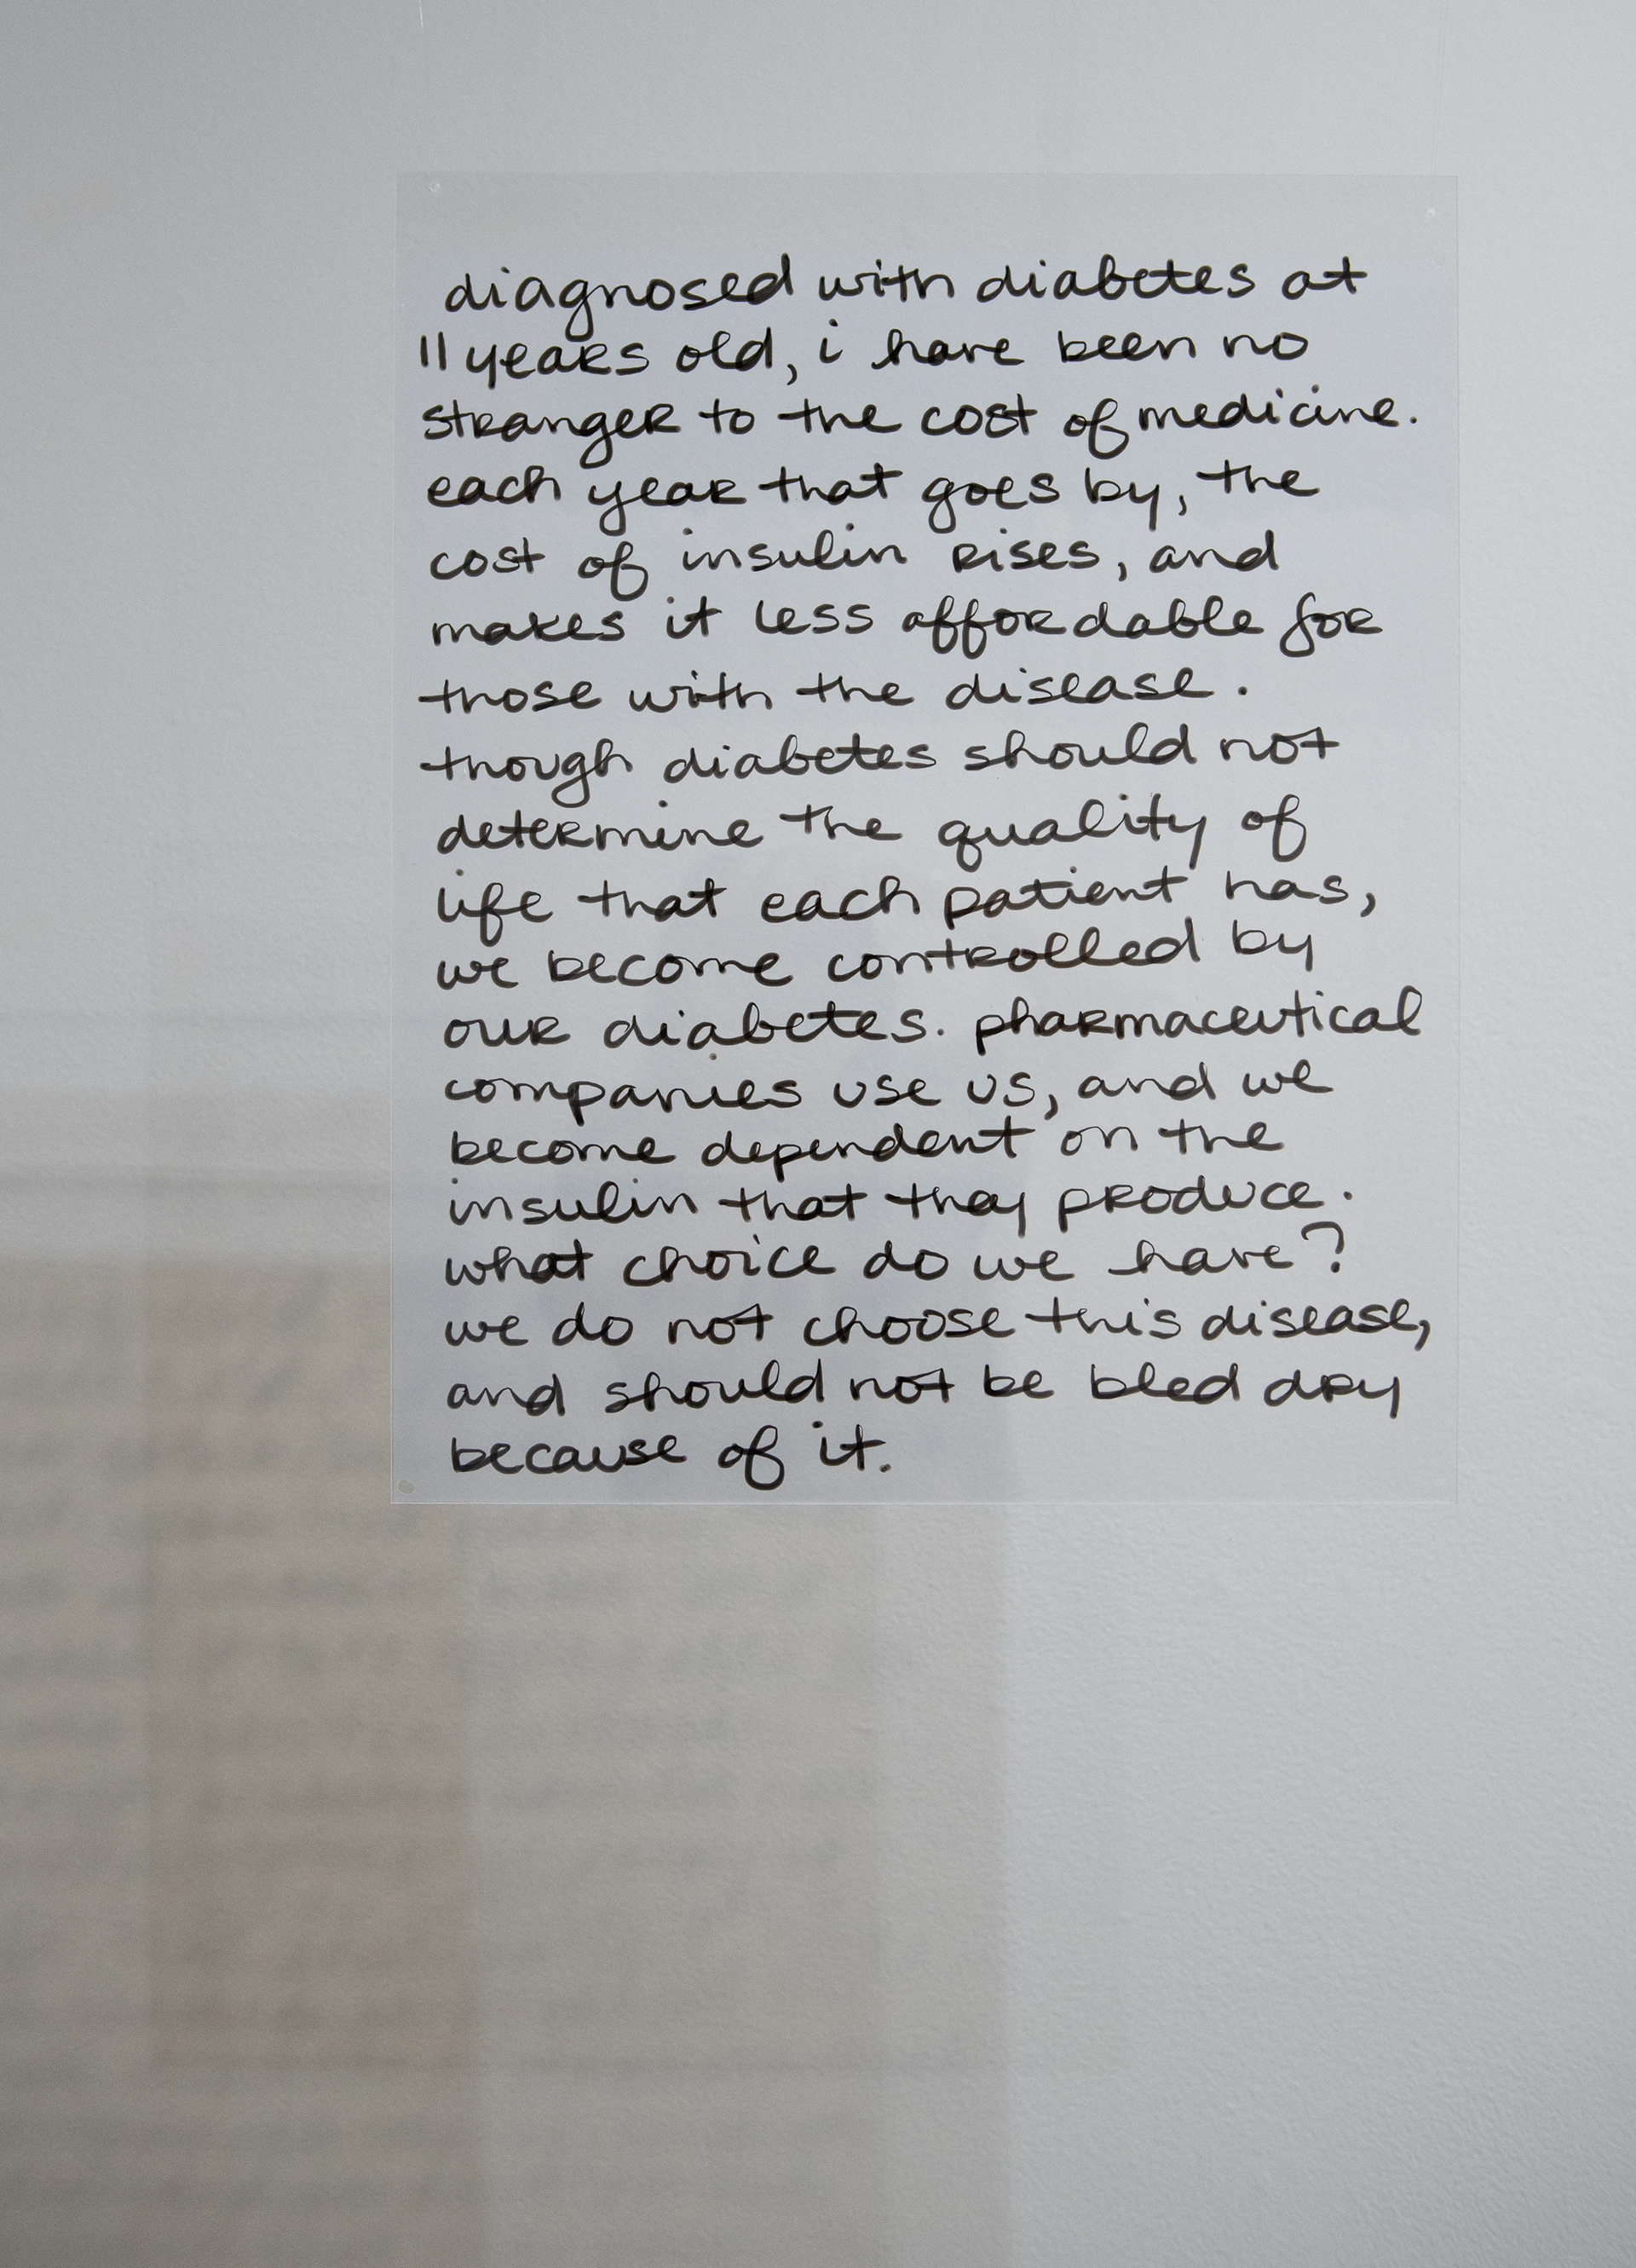 diagnosed with diabetes at
11 years old, i have been no
stranger to the cost of medicine.
each year that goes by, the
cost of insulin rises, and
makes it less affordable for
those with the disease.
though diabetes should not
determine the quality of
life that each patient has,
we become controlled by
our diabetes. pharmaceutical
companies use us, and we
become dependent on the
insulin that they produce.
what choice do we have?
we do not choose this disease,
and should not be bled dry
because of it.